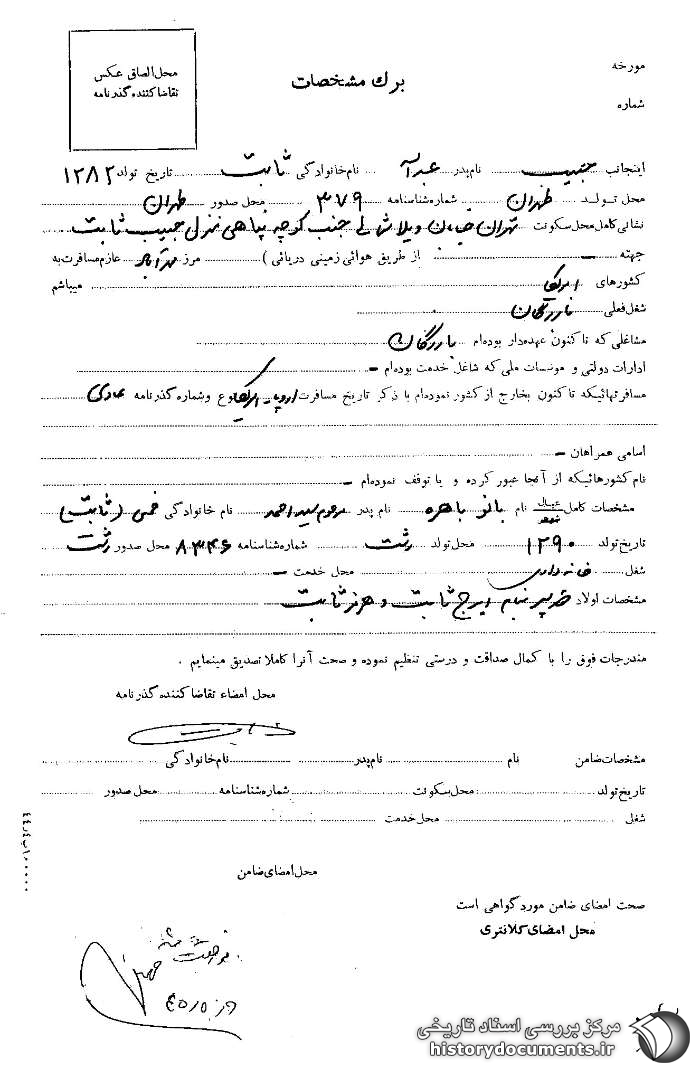 محل الصاق عکس
تقاضا کننده گذرنامه
برگ مشخصات
مورخه
شماره
اینجانب حبیب نام پدر عبداله نام خانوادگی ثابت تاریخ تولد ۱۲۸۲
محل تولد طهران شماره شناسنامه ۳۷۹ محل صدور طهران
نشانی کامل محل سکونت تهران خیابان ویلا شمالی جنب کوچه پناهی منزل حبیب ثابت
جهته – از طریق هوائی زمینی دریائی ) مرز مهرآباد عازم مسافرت به
کشورهای امریکا میباشم
شغل فعلی بازرگان
مشاغلی که تاکنون عهده‌دار بوده‌ام بازرگان
ادارات دولتی و موسسات ملی که شاغل خدمت بوده‌ام –
مسافرتهائیکه تاکنون بخارج از کشور نموده‌ام با ذکر تاریخ مسافرت اروپا - امریکا نوع وشماره گذرنامه عادی
اسامی همراهان –
نام کشورهائیکه از آنجا عبور کرده و یا توقف نموده‌ام –
مشخصات کامل عیال شوهر نام بانو باهره نام پدر مرحوم سید احمد نام خانوادگی خمسی (ثابت)
تاریخ تولد ۱۲۹۰ محل تولد رشت شماره شناسنامه ۸۳۴۶ محل صدور رشت
شغل خانه داری محل خدمت –
مشخصات اولاد دو پسر بنام ایرج ثابت و هرمز ثابت
مندرجات فوق را با کمال صداقت و درستی تنظیم نموده و صحت آنرا کاملا تصدیق مینمایم .
محل امضاء تقاضا کننده گذرنامه
مشخصات ضامن نام نام پدر نام خانوادگی
تاریخ تولد محل سکونت شماره شناسنامه محل صدور
شغل محل خدمت
محل امضای ضامن
صحت امضای ضامن مورد گواهی است
محل امضای کلانتری
مرکز بررسی اسناد تاریخی
historydocuments.ir